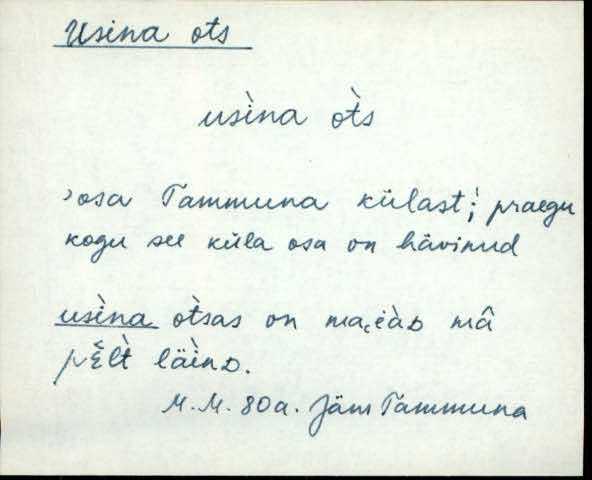 Usina ots
usìna òts
›osa Tammuna külast; praegu
kogu see küla osa on hävinud
usìna òtsas on ma‿iàᴅ mâ
pɛ̆lt̀ läìnᴅ.
M.M. 80a. Jäm Tammuna